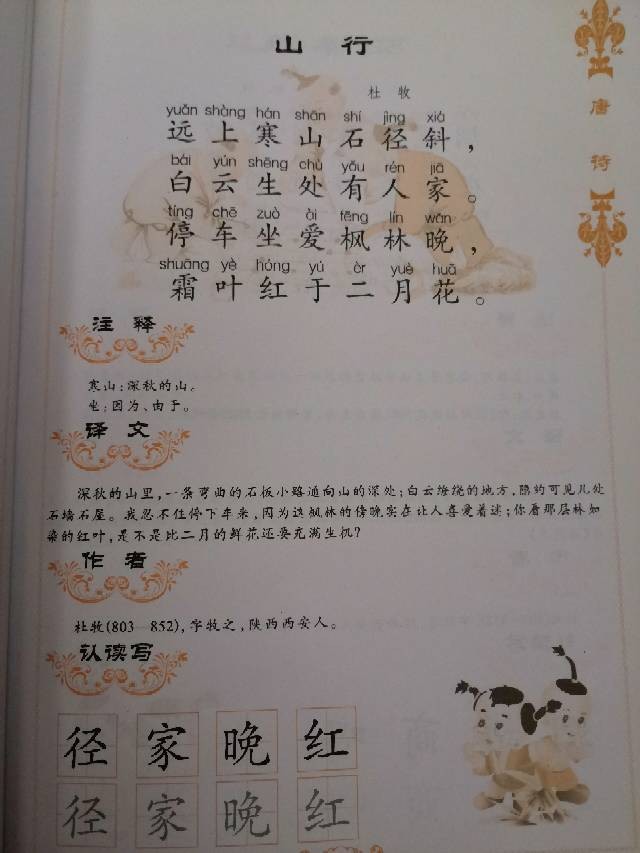 山 行
唐 诗
杜 牧
yuǎn shàng hán shān shí jìng xiá
远上寒山石径斜，
bái yún shēng chù yǒu rén jiā
白云生处有人家。
tíng chē zuò ài fēng lín wǎn
停车坐爱枫林晚，
shuāng yè hóng yú èr yuè huā
霜叶红于二月花。
注 释
寒山：深秋的山。
坐：因为、由于。
译 文
深秋的山里，一条弯曲的石板小路通向山的深处；白云缭绕的地方，隐约可见几处
石墙石屋。我忍不住停下车来，因为这枫林的傍晚实在让人喜爱着迷；你看那层林如
染的红叶，是不是比二月的鲜花还要充满生机？
作 者
杜牧(803—852)，字牧之，陕西西安人。
认读写
径 家 晚 红
径 家 晚 红